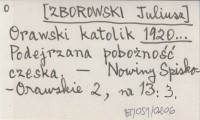 0
[ZBOROWSKI Juliusz]
Orawski katolik 1920...
Podejrzana pobożność
czeska. — Nowiny Spisko-
-Orawskie 2, nr 13: 3.